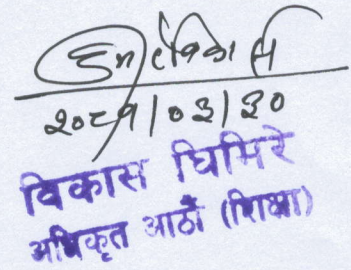 २०८१/०३/३०
विकास घिमिरे
अधिकृत आठौं (शिक्षा)